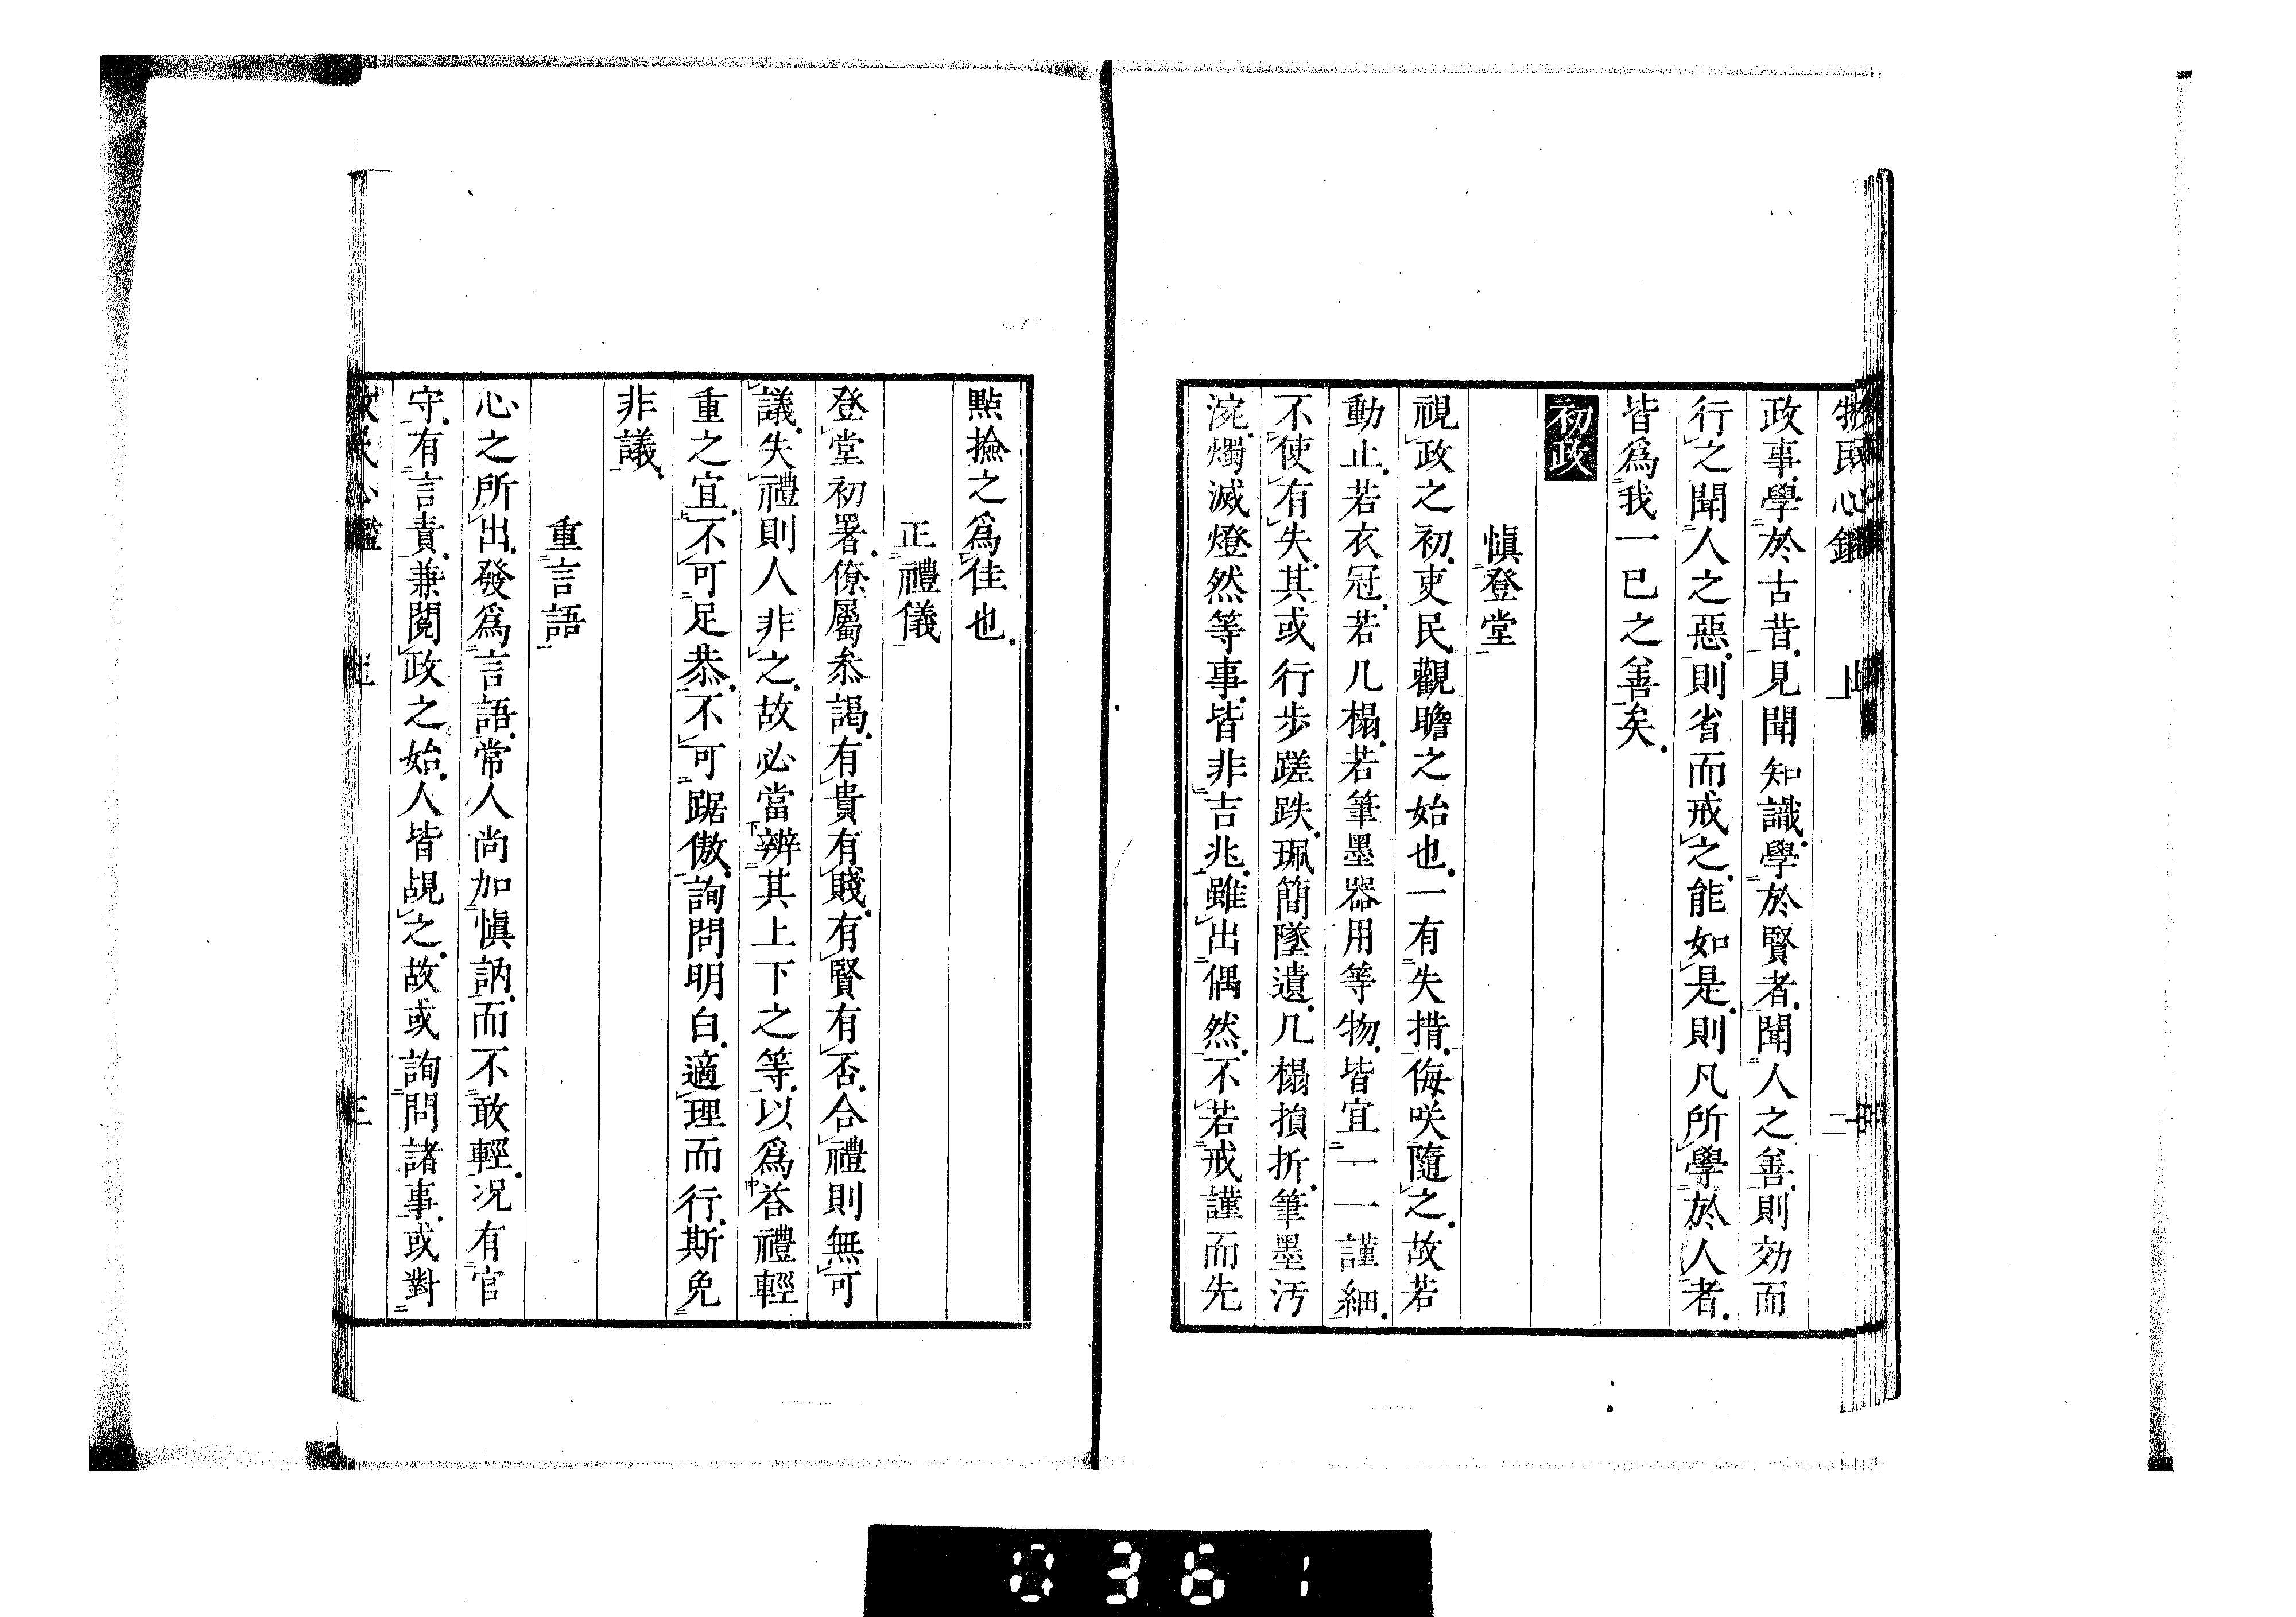 牧民心鑑 上 二
政事學於古昔見聞知識學於賢者聞人之善則効而
行之聞人之惡則省而戒之能如是則凡所學於人者
皆爲我一已之善矣
初政
愼登堂
視政之初吏民觀瞻之始也一有失措侮咲隨之故若
動止若衣冠若几榻若筆墨器用等物皆宜一一謹細
不使有失其或行步蹉跌珮簡墜遺几榻損折筆墨汚
涴燭滅燈然等事皆非吉兆雖出偶然不若戒謹而先
點撿之爲佳也
正禮儀
登堂初署僚屬叅謁有貴有賤有賢有否合禮則無可
議失禮則人非之故必當辨其上下之等以爲荅禮輕
重之宜不可足恭不可踞傲詢問明白適理而行斯免
非議
重言語
心之所出發爲言語常人尚加愼訥而不敢輕况有官
守有言責兼閲政之始人皆覘之故或詢問諸事或對
牧民心鑑 上 三
0361